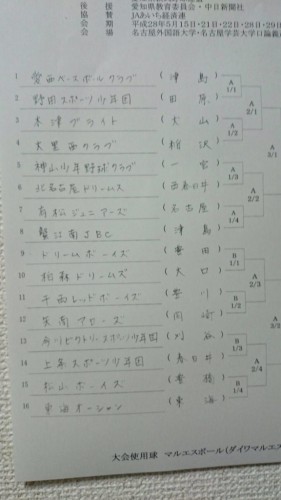 後 援 愛知県教育委員会・中日新聞社
協 賛 JAあいち経済連
会 期 平成28年5月15日・21日・22日・28日・29日
会 場 名古屋外国語大学・名古屋芸術大学口論義
1 愛西ベースボールクラブ (津島)
2 野田スポーツ少年団 (田原)
3 木津グライト (犬山)
4 大里西クラブ (稲沢)
5 神山少年野球クラブ (一宮)
6 北名古屋ドリームス (西春日井)
7 有松ジュニアーズ (名古屋)
8 蟹江南JBC (津島)
9 ドリームボーイズ (豊田)
10 柏森ドリームズ (大口)
11 千両レッドボーイズ (豊川)
12 矢南アローズ (岡崎)
13 ビクトリースポーツ少年団 (刈谷)
14 上条スポーツ少年団 (春日井)
15 松山ボーイズ (豊橋)
16 東海オーシャン (東海)
A 1/1
A 1/2
A 1/3
A 1/4
B 1/1
B 1/2
B 1/3
B 1/4
A 2/1
A 2/2
A 2/3
A 2/4
A 3/
大会使用球 マルエスボール(ダイワマルエス